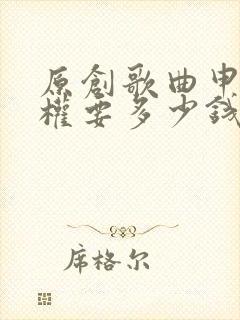 原創歌曲申
權要多少錢
席格尔